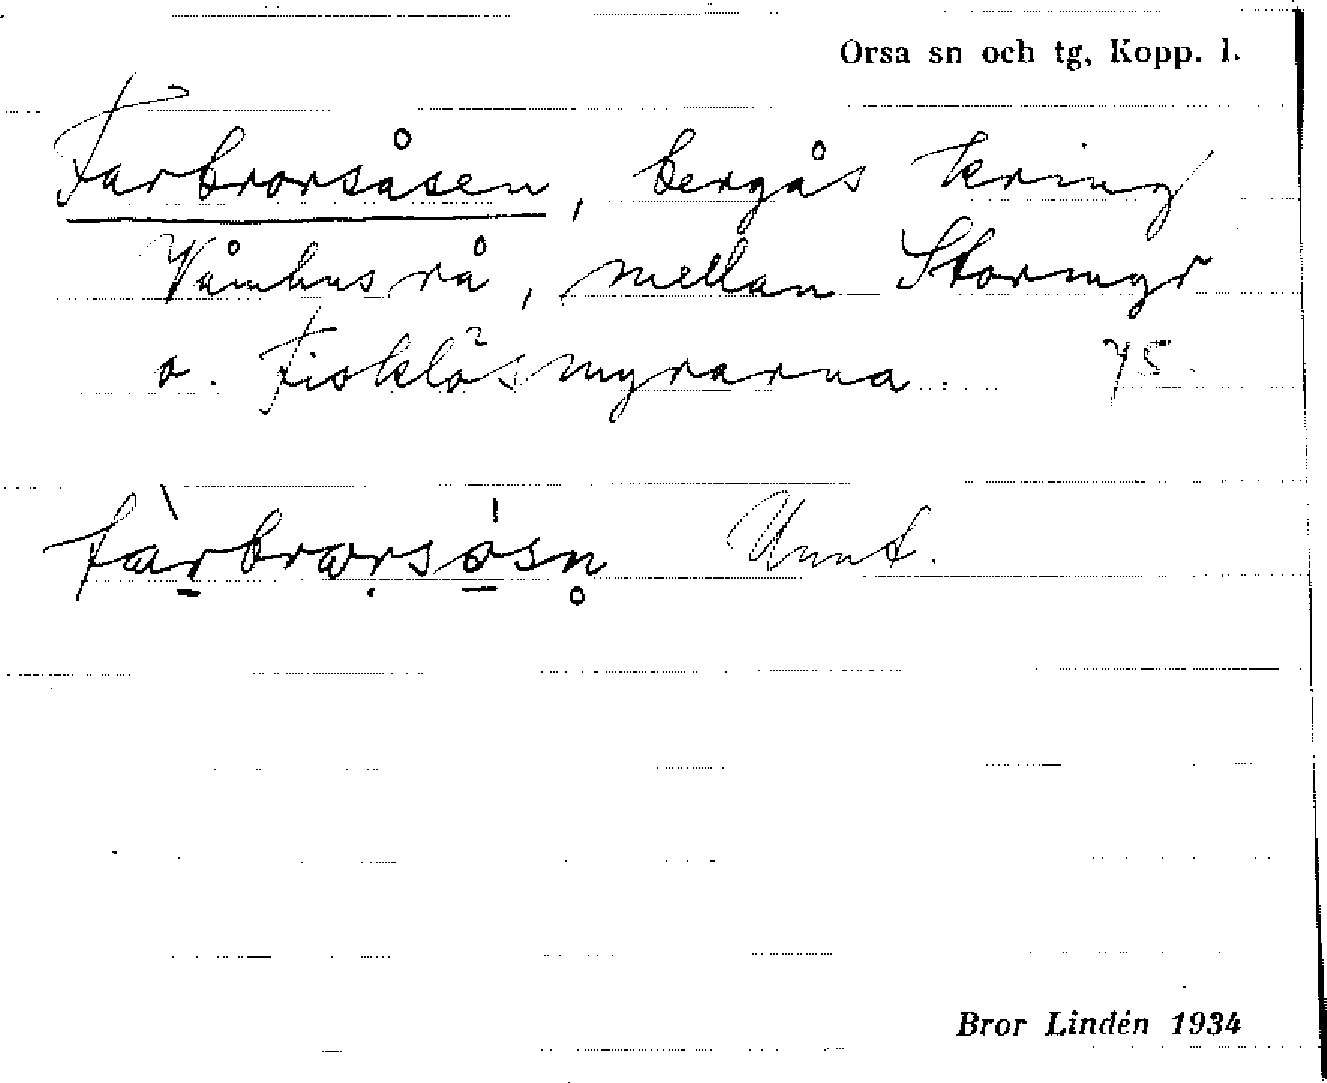 Orsa sn och tg, Kopp. l.
Farbrorsåsen, bergås kring
Våmhus rå, mellan Stormyr
o. Fisklösmyrarna. 75.
fàrbrorsåsn Unnt.
Bror Lindén 1934